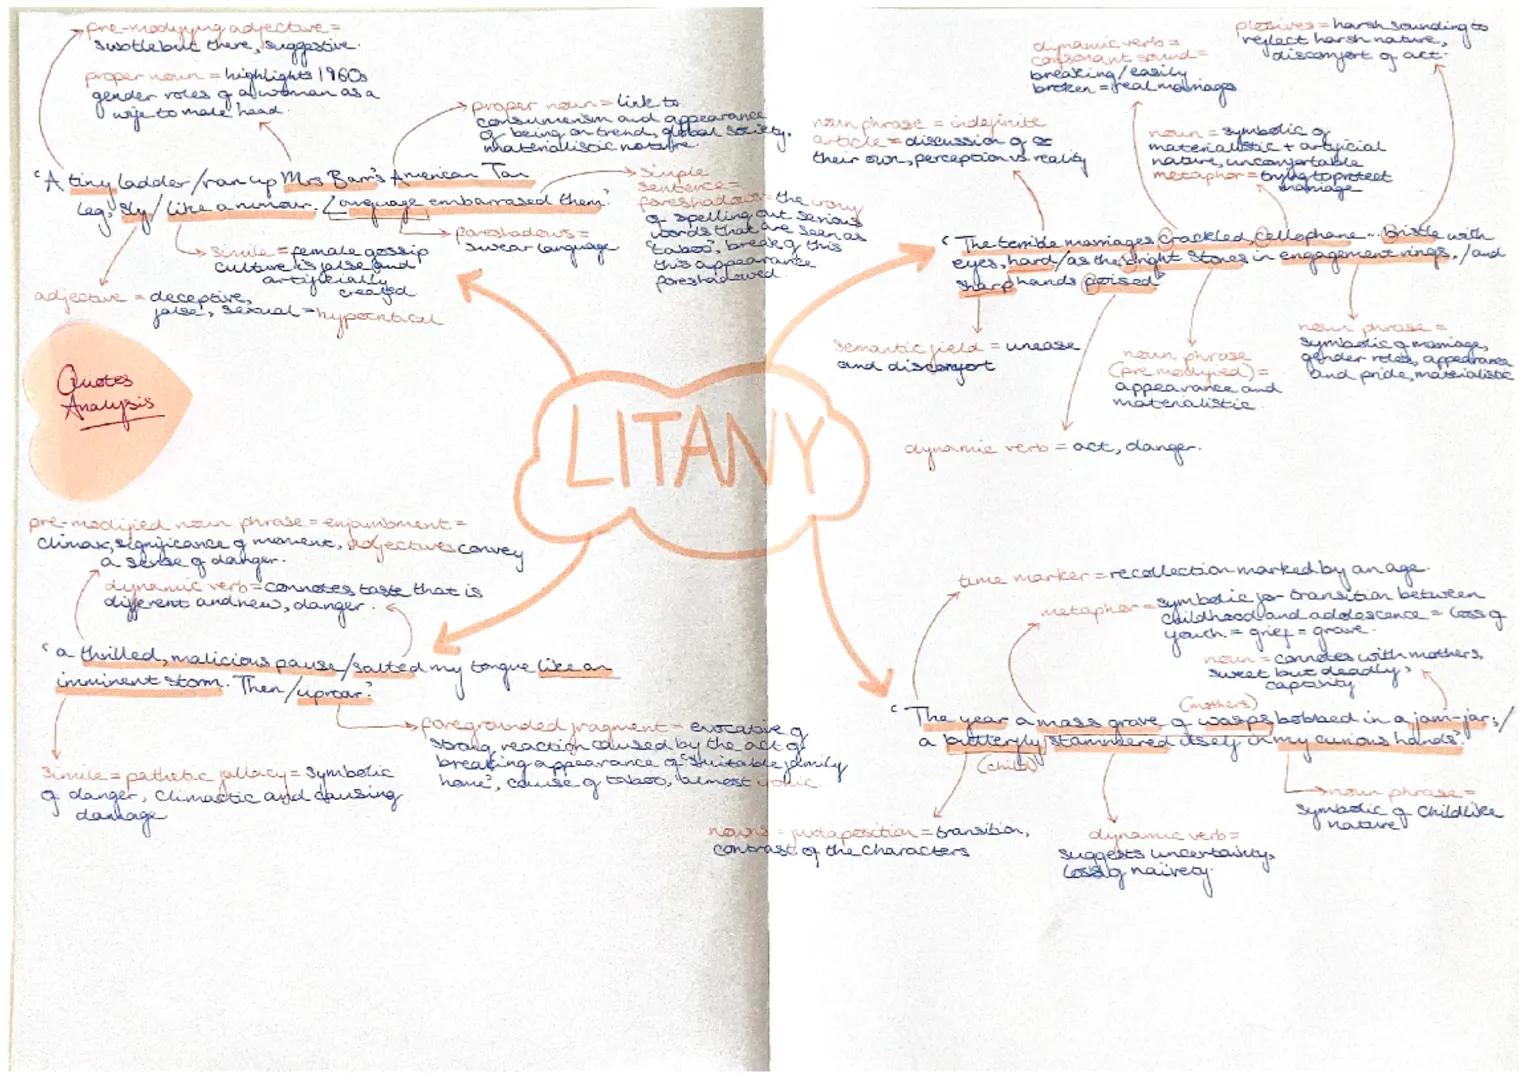 pre-modifying adjective =
subtle but there, suggestive.
proper noun = highlights 1960s
gender roles of a woman as a
wife to male head.
proper noun = link to
consumerism and appearance
of being on trend, global society,
materialistic nature.
'A tiny ladder/ran up Mrs Barr's American Tan
leg, sly/like a rumour. Language embarrased them.'
simple
sentence =
foreshadows = the irony
of spelling out serious
words that are seen as
'taboo', break of this
this appearance
foreshadowed
foreshadows =
swear language
simile = female gossip
culture is false and
artificially
created
adjective = deceptive,
false, sexual = hypocritical
Quotes
Analysis
LITANY
dynamic verb =
consonant sound =
breaking/easily
broken = real marriage
plosives = harsh sounding to
reflect harsh nature,
discomfort of act.
noun phrase = indefinite
article = discussion of
their own, perception vs reality
noun = symbolic of
materialistic + artificial
nature, uncomfortable
metaphor = trying to protect
marriage
'The terrible marriages crackled, cellophane... Bristle with
eyes, hard/as the bright stones in engagement rings,/and
sharp hands poised'
semantic field = unease
and discomfort
noun phrase
(pre modified) =
appearance and
materialistic.
noun phrase =
symbolic of marriage,
gender roles, appearance
and pride, materialistic
dynamic verb = act, danger.
pre-modified noun phrase = enjambment =
climax, significance of moment, adjectives convey
a sense of danger.
dynamic verb = connotes taste that is
different and new, danger.
'a thrilled, malicious pause/salted my tongue like an
imminent storm. Then/uproar.'
foregrounded fragment = evocative of
strong reaction caused by the act of
breaking appearance of 'suitable family
home', cause of taboo, almost
simile = pathetic fallacy = symbolic
of danger, climactic and causing
damage
time marker = recollection marked by an age.
metaphor = symbolic for transition between
childhood and adolescence = loss of
youth = grief = grave.
noun = connotes with mothers,
sweet but deadly,
captivity
(mothers)
'The year a mass grave of wasps bobbed in a jam-jar;/
a butterfly stammered itself in my curious hands'
(child)
noun phrase =
symbolic of childlike
nature
nouns = juxtaposition = transition,
contrast of the characters
dynamic verb =
suggests uncertainty,
loss of naivety.